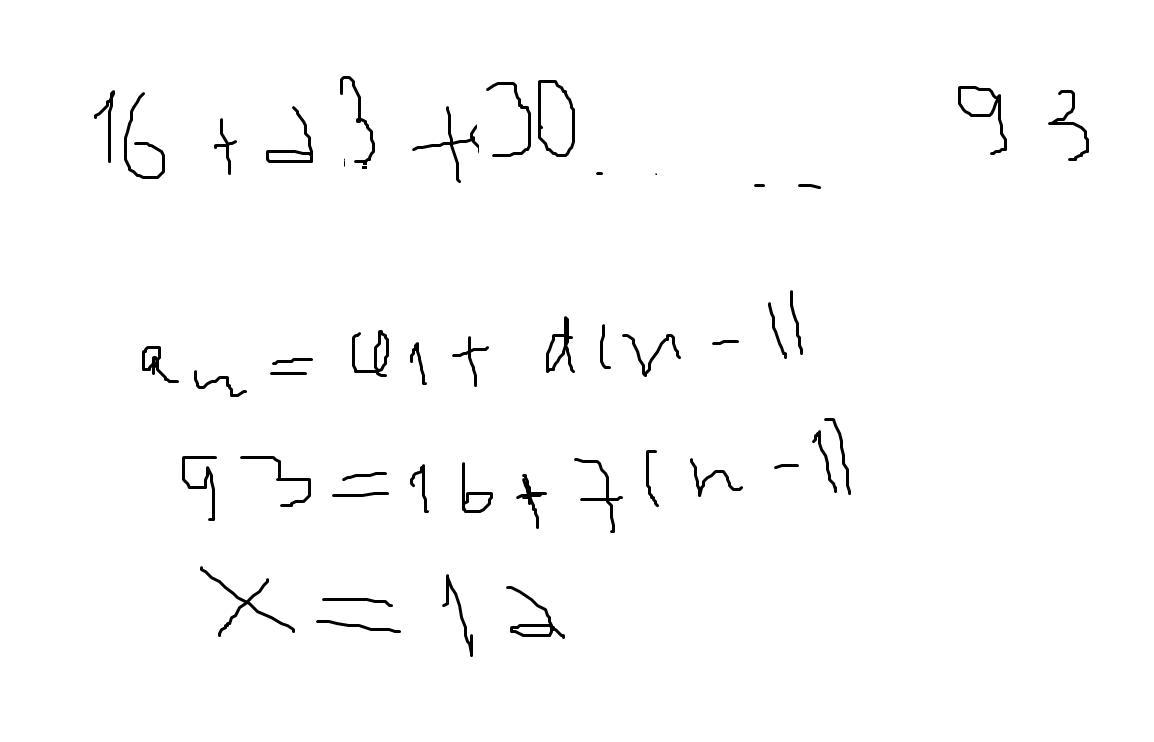 16 + 23 + 30 . . . - - 93
an = a1 + d(n - 1)
93 = 16 + 7(n - 1)
x = 12